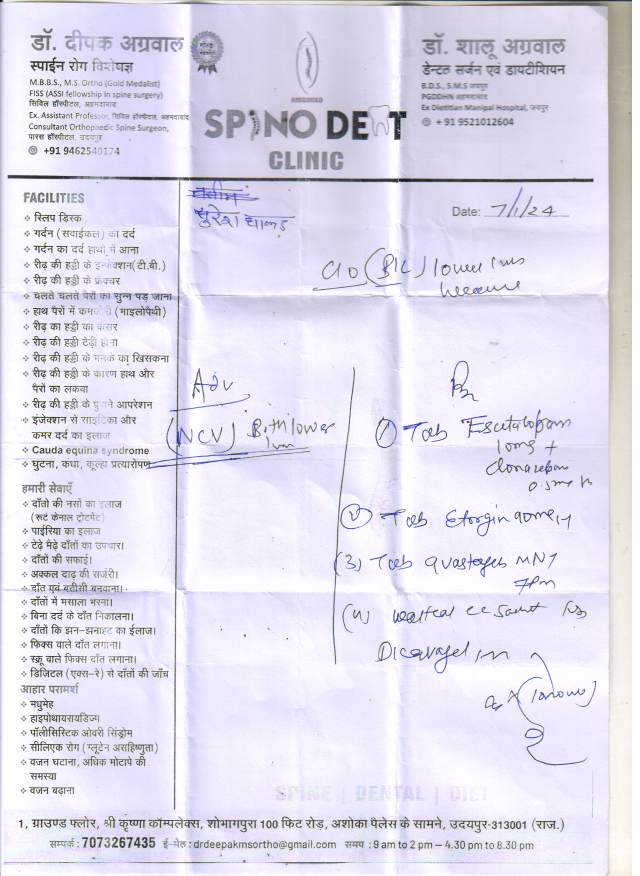 डॉ. दीपक अग्रवाल
स्पाईन रोग विशेषज्ञ
M.B.B.S., M.S. Ortho (Gold Medalist)
FISS (ASSI fellowship in spine surgery)
सिविल हॉस्पीटल, अहमदाबाद
Ex. Assistant Professor, सिविल हॉस्पीटल, अहमदाबाद
Consultant Orthopaedic Spine Surgeon,
पारस हॉस्पीटल, उदयपुर
+91 9462540174
SPINO DENT
CLINIC
डॉ. शालू अग्रवाल
डेन्टल सर्जन एवं डायटीशियन
B.D.S., S.M.S जयपुर
PGDDHN अहमदाबाद
Ex Dietitian Manipal Hospital, जयपुर
+ 91 9521012604
FACILITIES
स्लिप डिस्क
गर्दन (सवाईकल) का दर्द
गर्दन का दर्द हाथो में आना
रीढ़ की हड्डी के इन्फेक्शन(टी.बी.)
रीढ़ की हड्डी के फ्रेक्चर
चलते चलते पैरों का सुन्न पड़ जाना
हाथ पैरों में कमजोरी (माइलोपैथी)
रीढ़ का हड्डी का कैंसर
रीढ़ की हड्डी टेढ़ी होना
रीढ़ की हड्डी के मनके का खिसकना
रीढ़ की हड्डी के कारण हाथ और
पैरों का लकवा
रीढ़ की हड्डी के पुराने आपरेशन
इंजेक्शन से साइटिका और
कमर दर्द का इलाज
Cauda equina syndrome
घुटना, कंधा, कूल्हा प्रत्यारोपण
हमारी सेवाएँ
दाँतो की नसों का इलाज
(रूट केनाल ट्रीटमेंट)
पाईरिया का इलाज
टेढ़े मेढ़े दाँतों का उपचार।
दाँतों की सफाई।
अक्कल दाढ़ की सर्जरी।
दाँत एवं बतीसी बनवाना।
दाँतों में मसाला भरना।
बिना दर्द के दाँत निकालना।
दाँतों कि झन-झनाहट का ईलाज।
फिक्स वाले दाँत लगाना।
स्क्रू वाले फिक्स दाँत लगाना।
डिजिटल (एक्स-रे) से दाँतों की जाँच
आहार परामर्श
मधुमेह
हाइपोथायरायडिज्म
पॉलीसिस्टिक ओवरी सिंड्रोम
सीलिएक रोग (ग्लूटेन असहिष्णुता)
वजन घटाना, अधिक मोटापे की
समस्या
वजन बढ़ाना
Date: 7/1/24
c/o (B/L) lower
Adv
(NCV) Both lower
Rx
(1) Tab Escitalopram
10mg +
clonazepam
(2) Tab
(3) Tab
7Pm
SPINE | DENTAL | DIET
1, ग्राउण्ड फ्लोर, श्री कृष्णा कॉम्पलेक्स, शोभागपुरा 100 फिट रोड़, अशोका पैलेस के सामने, उदयपुर-313001 (राज.)
सम्पर्क : 7073267435 ई-मेल : drdeepakmsortho@gmail.com समय : 9 am to 2 pm – 4.30 pm to 8.30 pm